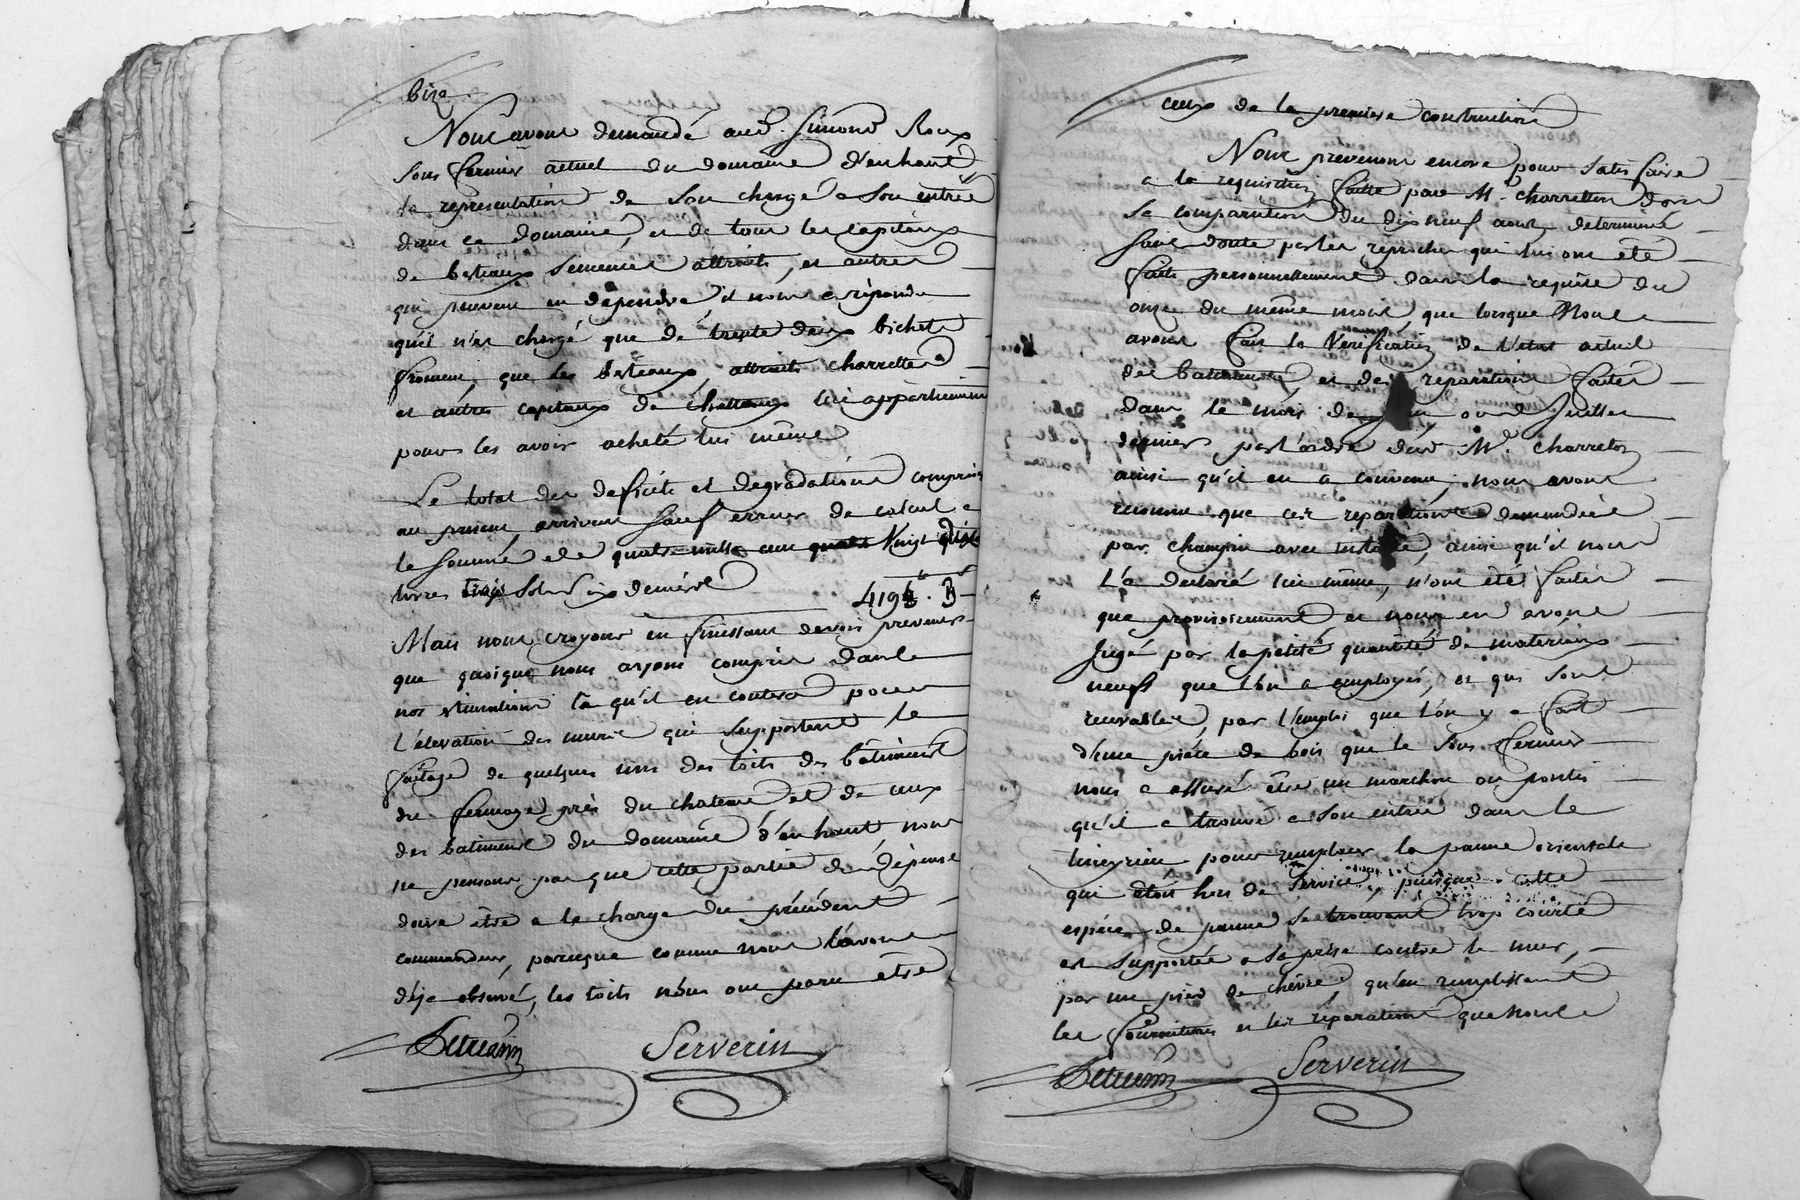 bise
Nous avons demandé aud. Simond Roux
sous fermier actuel du domaine d'enhaut
la representation de son chargé a son entrée
dans ce domaine, et de tous les capitaux
de bestiaux semences attraits, et autres
qui peuvent en dependre il nous a repondu
quil n'est chargé que de trente deux bichets
froment, que les bestiaux, attraits charrettes
et autres capitaux de lui appartiennent
pour les avoir acheté lui même
Le total des deficits et degradations compris
au present, arrivent sauf erreur de calcul a
la somme de quatre mille cent quatre vingt
livres trois sols six deniers
Mais nous croyons en finissant devoir prevenir
que quoique nous ayons compris dans
nos estimations ce qu'il en coutera pour
l'élévation des murs qui supportent le
faitage de quelques uns des toits des bâtiments
du fermage près du chateau et de ceux
des batiments du domaine d'en haut, nous
ne pensons pas que cette partie de dépense
doive être a la charge du précédent
commandeur, parceque comme nous l'avons
déja observé, les toits nous ont paru être
Serverin
ceux de la premiere construction
Nous prevenons encore pour satisfaire
a la requisition faitte par Mr. charretton dans
sa comparution du dix neuf aout, determinée
sans doute par les reproches qui lui ont été
faits personnellement dans la requête du
onze du même mois, que lorsque Nous
avons fait la verification de l'état actuel
des batiments, et des reparations faites
dans le mois de juin ou Juillet
dernier par l'ordre dud. Mr. charretton
ainsi qu'il en a convenu, nous avons
reconnu que ces reparations demandées
par champin avec instance, ainsi qu'il nous
l'a declaré lui même, n'ont été faites
que provisoirement et nous en avons
jugé par la petite quantité de materiaux
neufs que l'on a employés, et qui sont
recevables, par l'emploi que l'on y a fait
d'une piéce de bois que le sous fermier
nous a assuré être un marchon ou pontis
qu'il a trouvé a son entrée dans le
pour remplacer la panne orientale
qui étoit hors de service, puisque cette
espéce de panne se trouvant trop courte
est supportée a sa prise contre le mur,
par un pied de chévre, qu'en remplissant
les fournitures et les réparations que nous
Serverin